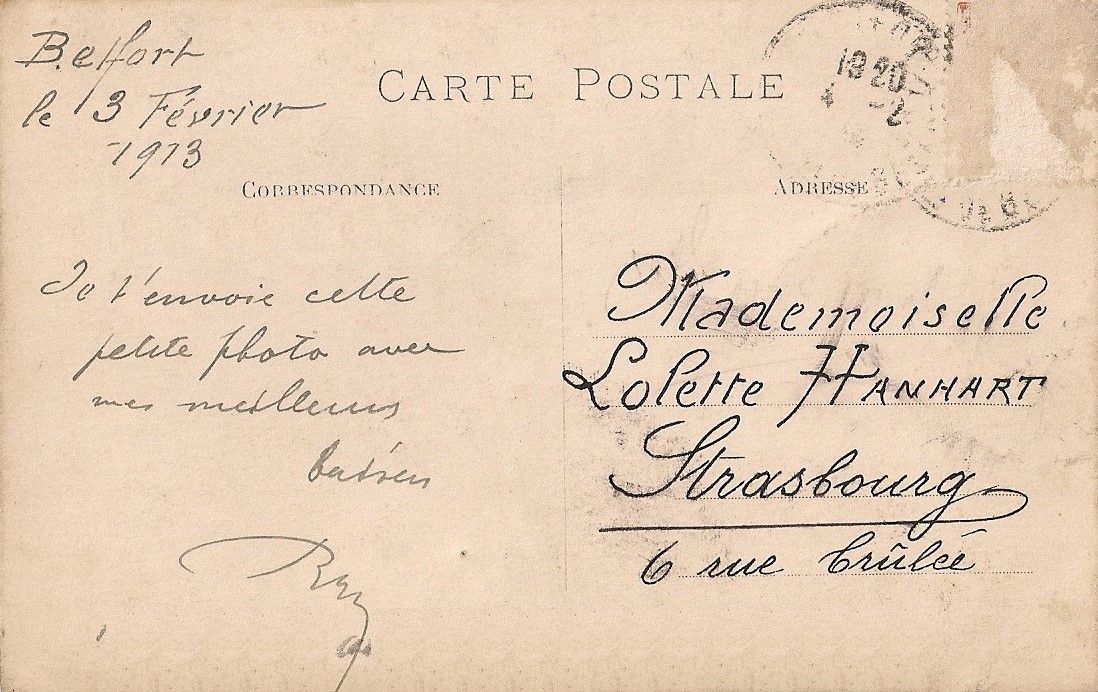 Belfort
le 3 Février
1913
CARTE POSTALE
18 20
4 -2
CORRESPONDANCE
ADRESSE
Je t'envoie cette
petite photo avec
mes meilleurs
baisers
Mademoiselle
Lolette HANHART
Strasbourg
6 rue brûlée